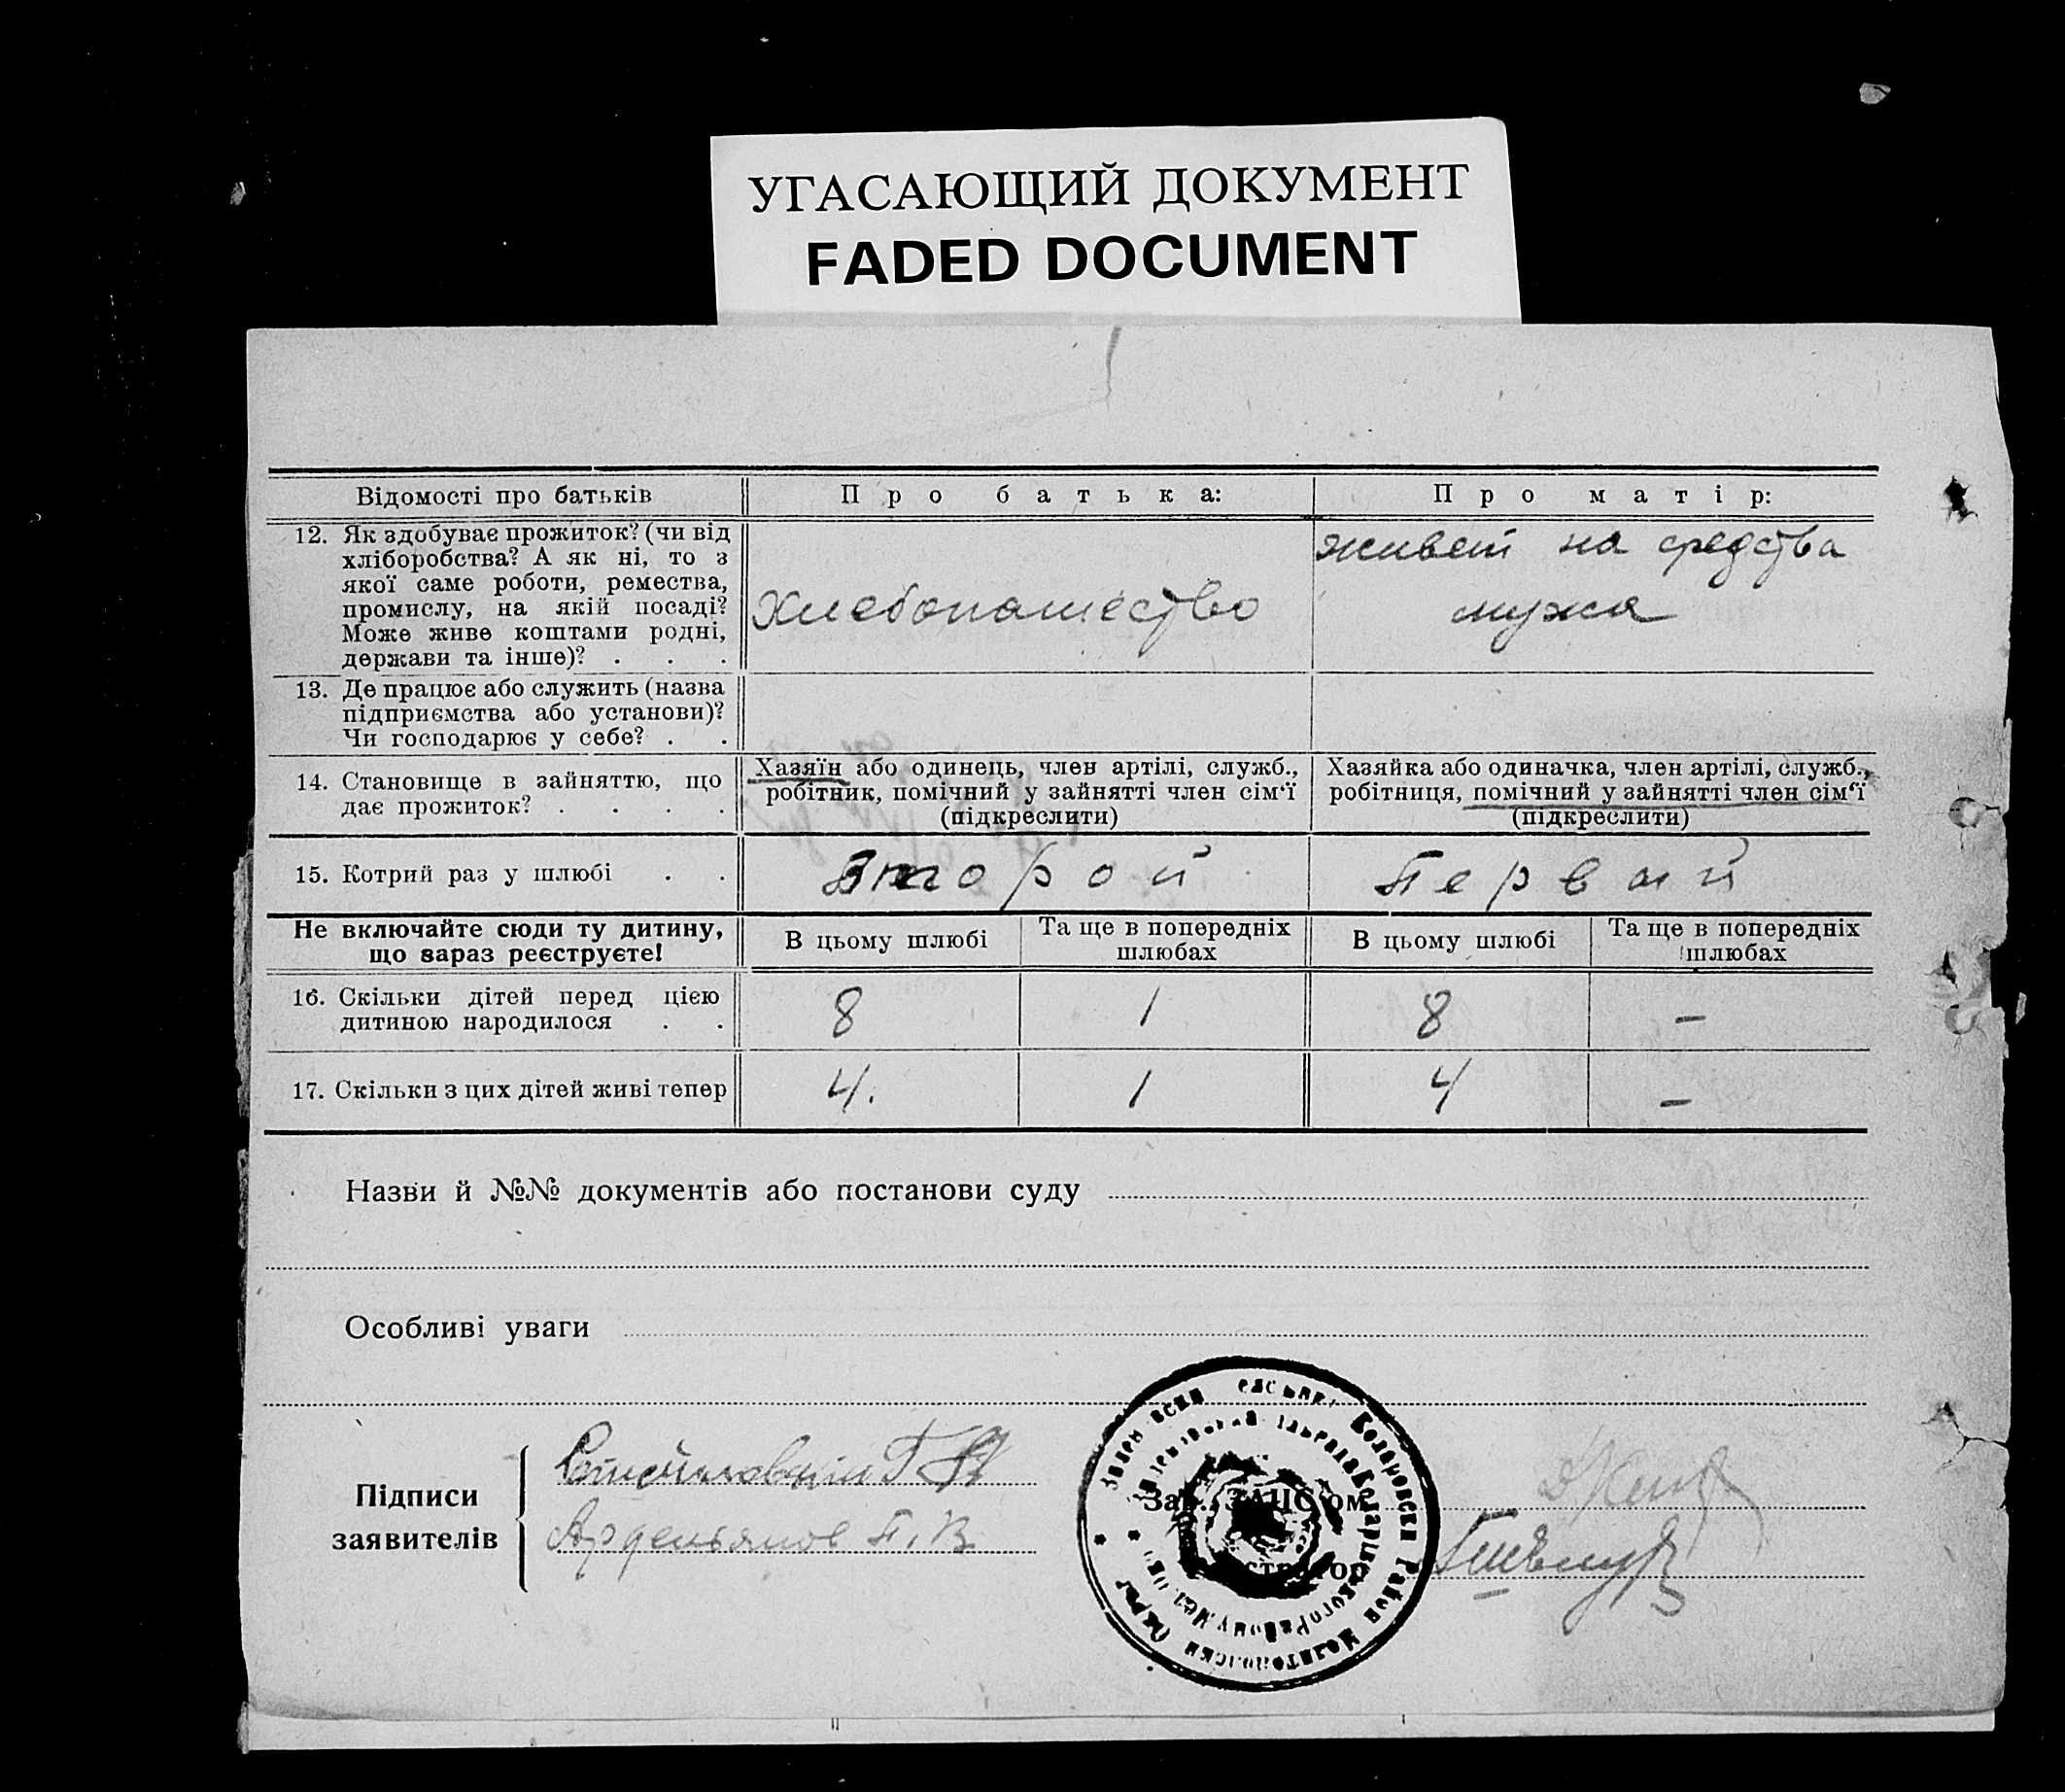 УГАСАЮЩИЙ ДОКУМЕНТ
FADED DOCUMENT
Відомості про батьків
Про батька:
Про матір:
12. Як здобуває прожиток? (чи від
хліборобства? А як ні, то з
якої саме роботи, ремества,
промислу, на якій посаді?
Може живе коштами родні,
держави та інше)? . . .
Хлебопашество
живет на средства
мужа
13. Де працює або служить (назва
підприємства або установи)?
Чи господарює у себе? . .
14. Становище в зайняттю, що
дає прожиток? . . . .
Хазяїн або одинець, член артілі, служб.,
робітник, помічний у зайнятті член сім‘ї
(підкреслити)
Хазяйка або одиначка, член артілі, служб.,
робітниця, помічний у зайнятті член сім‘ї
(підкреслити)
15. Котрий раз у шлюбі . .
Второй
Первый
Не включайте сюди ту дитину,
що зараз реєструєте!
В цьому шлюбі
Та ще в попередніх
шлюбах
В цьому шлюбі
Та ще в попередніх
шлюбах
16. Скільки дітей перед цією
дитиною народилося . .
8
1
8
–
17. Скільки з цих дітей живі тепер
4.
1
4
–
Назви й №№ документів або постанови суду
Особливі уваги
Підписи
заявителів
Арденьянов П. В
Зав. ЗАЦС'ом
Коларовски Район Мелитополски